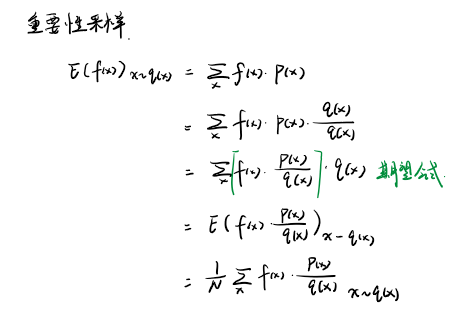 重要性采样.
E(f(x))x~q(x) = Σx f(x)·p(x)
= Σx f(x)·p(x)·q(x)/q(x)
= Σx[f(x)·p(x)/q(x)]·q(x) 期望公式.
= E(f(x)·p(x)/q(x))x-q(x)
= 1/N Σx f(x)·p(x)/q(x) x~q(x)